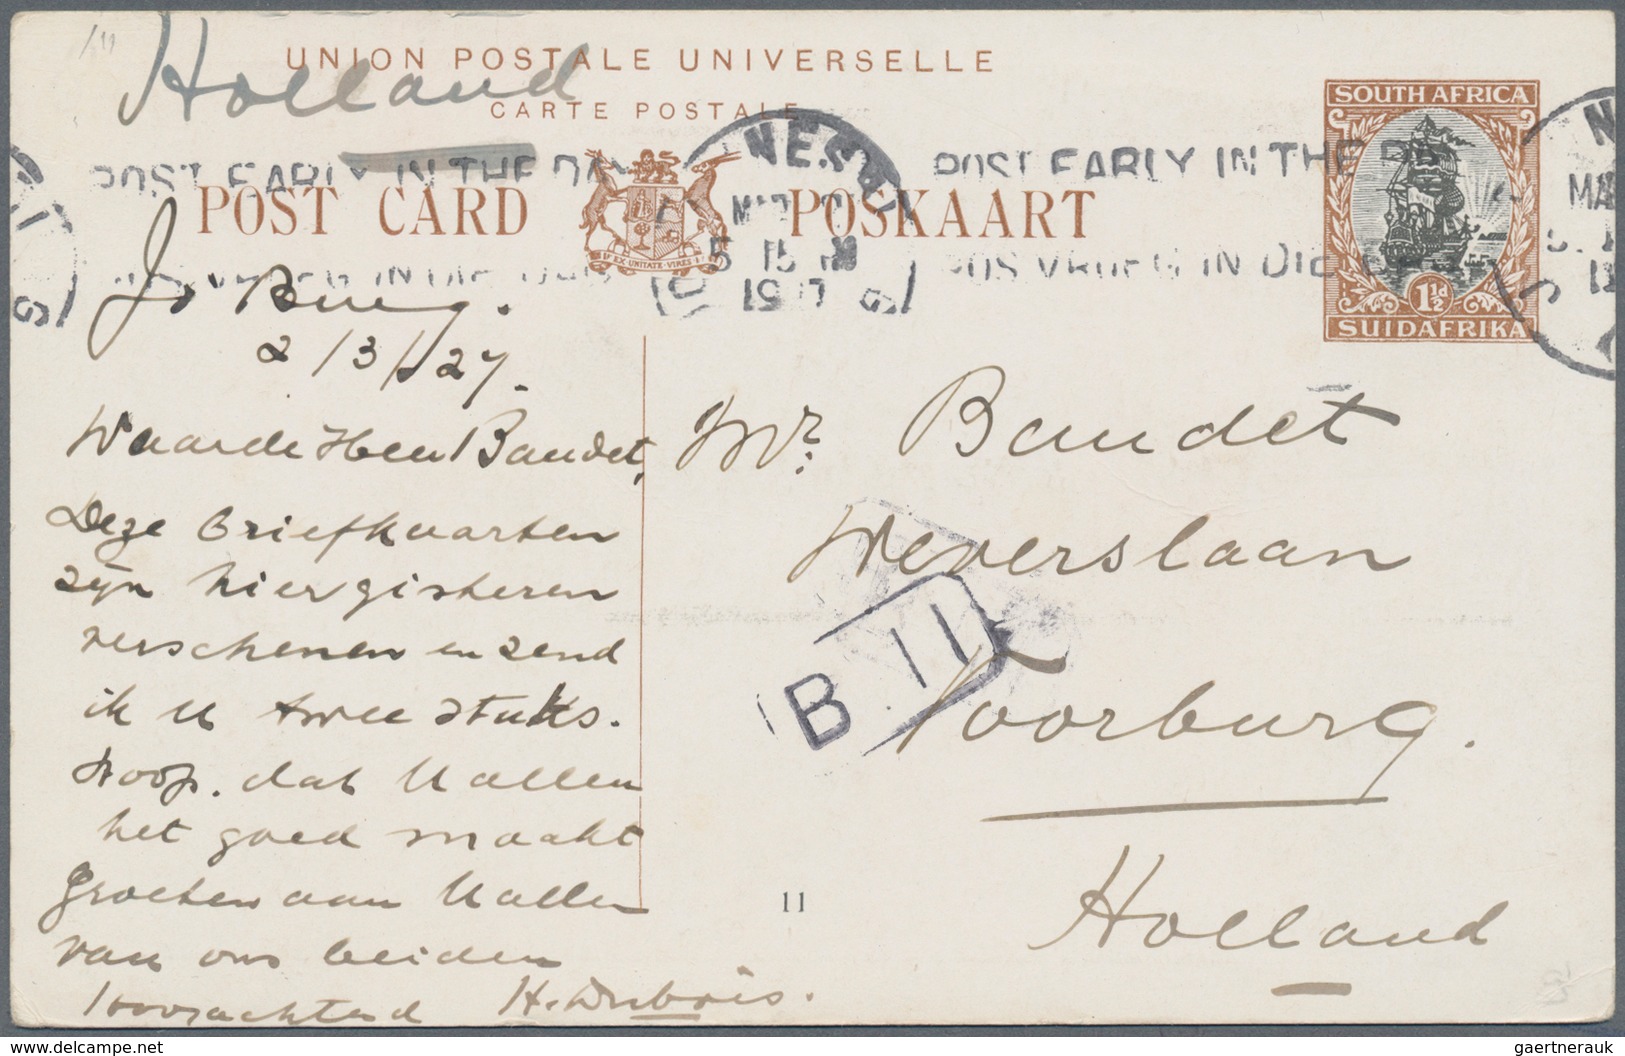 Holland
UNION POSTALE UNIVERSELLE
CARTE POSTALE
POST EARLY IN THE DAY
POST EARLY IN THE D
POST CARD
POSKAART
EX·UNITATE·VIRES
NESBU
MAR
5 15
POS VROEG IN DIE
SOUTH AFRICA
1½d
SUIDAFRIKA
Jo Burg.
2/3/27.
Waarde Heer Baudet,
Deze briefkaarten
zijn hier gisteren
verschenen en zend
ik U twee stuks.
Hoop. dat U allen
het goed maakt
Groeten aan U allen
van ons beiden
Hoogachtend H. Dubois.
Mr. Baudet
Weverslaan
Voorburg.
Holland
B 11
11
www.delcampe.net
gaertnerauk